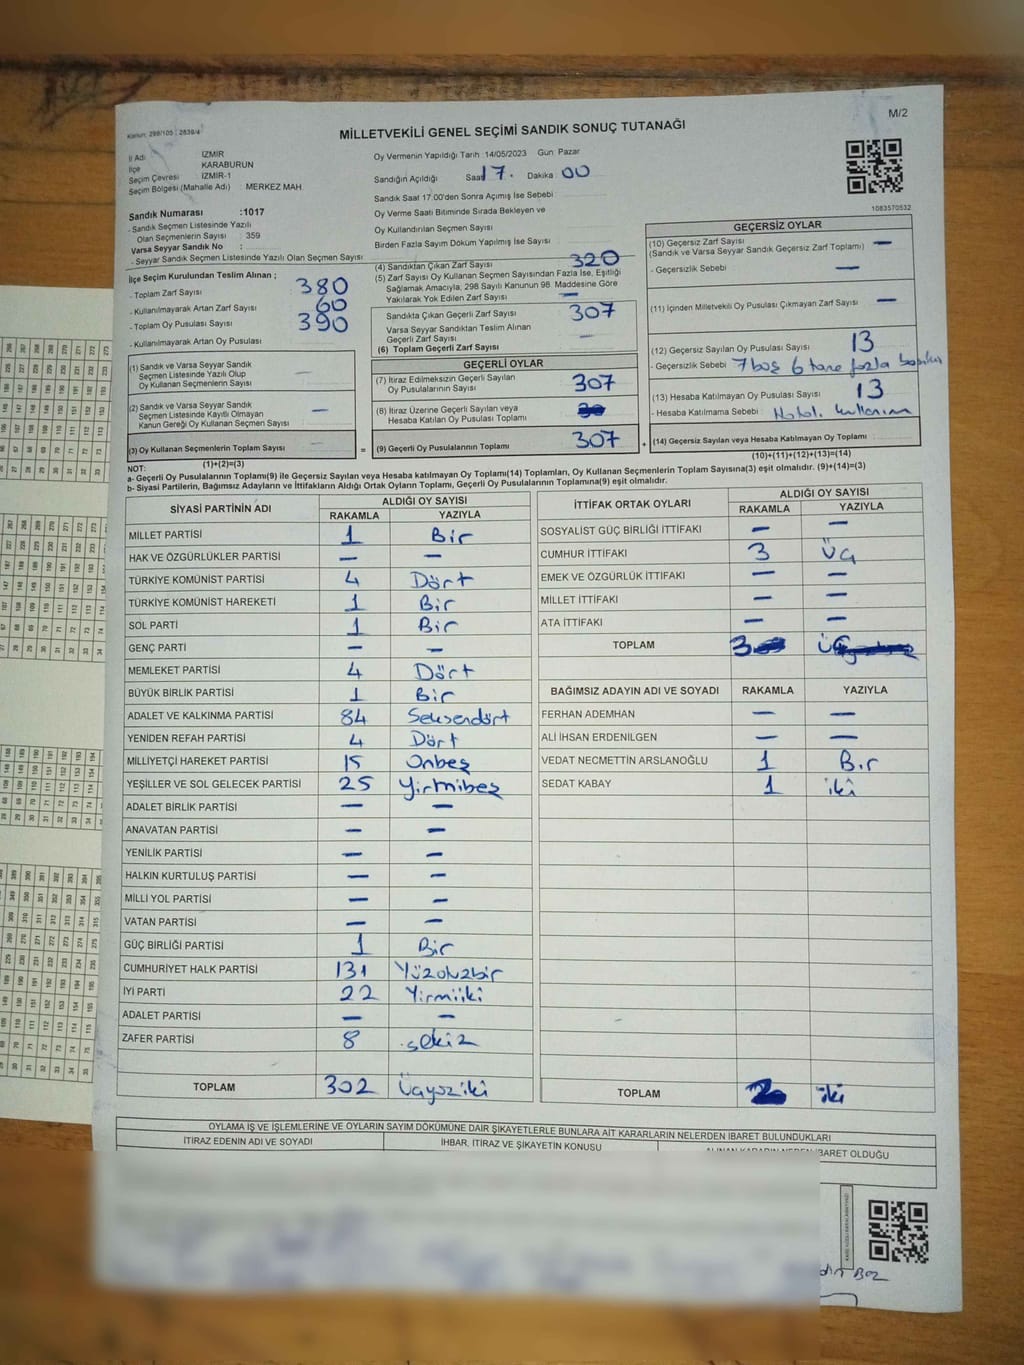 M/2
Kanun: 298/105 2839/4
MİLLETVEKİLİ GENEL SEÇİMİ SANDIK SONUÇ TUTANAĞI
İl Adı : İZMİR
İlçe : KARABURUN
Seçim Çevresi : İZMİR-1
Seçim Bölgesi (Mahalle Adı) : MERKEZ MAH.
Sandık Numarası :1017
- Sandık Seçmen Listesinde Yazılı
Olan Seçmenlerin Sayısı : 359
Varsa Seyyar Sandık No :
- Seyyar Sandık Seçmen Listesinde Yazılı Olan Seçmen Sayısı
Oy Vermenin Yapıldığı Tarih :14/05/2023 Gün: Pazar
Sandığın Açıldığı Saat 17. Dakika : 00
Sandık Saat 17:00'den Sonra Açılmış İse Sebebi :
Oy Verme Saati Bitiminde Sırada Bekleyen ve
Oy Kullandırılan Seçmen Sayısı
Birden Fazla Sayım Döküm Yapılmış İse Sayısı
1083570532
İlçe Seçim Kurulundan Teslim Alınan ;
- Toplam Zarf Sayısı : 380
- Kullanılmayarak Artan Zarf Sayısı : 60
- Toplam Oy Pusulası Sayısı : 390
- Kullanılmayarak Artan Oy Pusulası
(1) Sandık ve Varsa Seyyar Sandık
Seçmen Listesinde Yazılı Olup
Oy Kullanan Seçmenlerin Sayısı : —
(2) Sandık ve Varsa Seyyar Sandık
Seçmen Listesinde Kayıtlı Olmayan
Kanun Gereği Oy Kullanan Seçmen Sayısı : —
(3) Oy Kullanan Seçmenlerin Toplam Sayısı : —
(1)+(2)=(3)
(4) Sandıktan Çıkan Zarf Sayısı : 320
(5) Zarf Sayısı Oy Kullanan Seçmen Sayısından Fazla İse, Eşitliği
Sağlamak Amacıyla, 298 Sayılı Kanunun 98. Maddesine Göre
Yakılarak Yok Edilen Zarf Sayısı : —
Sandıkta Çıkan Geçerli Zarf Sayısı : 307
Varsa Seyyar Sandıktan Teslim Alınan
Geçerli Zarf Sayısı : —
(6) Toplam Geçerli Zarf Sayısı :
GEÇERLİ OYLAR
(7) İtiraz Edilmeksizin Geçerli Sayılan
Oy Pusulalarının Sayısı : 307
(8) İtiraz Üzerine Geçerli Sayılan veya
Hesaba Katılan Oy Pusulası Toplamı :
(9) Geçerli Oy Pusulalarının Toplamı : 307
GEÇERSİZ OYLAR
(10) Geçersiz Zarf Sayısı
(Sandık ve Varsa Seyyar Sandık Geçersiz Zarf Toplamı) : —
- Geçersizlik Sebebi : —
(11) İçinden Milletvekili Oy Pusulası Çıkmayan Zarf Sayısı : —
(12) Geçersiz Sayılan Oy Pusulası Sayısı : 13
- Geçersizlik Sebebi : 7 boş 6 tane fazla
(13) Hesaba Katılmayan Oy Pusulası Sayısı : 13
- Hesaba Katılmama Sebebi : Hatalı kullanım
(14) Geçersiz Sayılan veya Hesaba Katılmayan Oy Toplamı :
(10)+(11)+(12)+(13)=(14)
NOT:
a- Geçerli Oy Pusulalarının Toplamı(9) ile Geçersiz Sayılan veya Hesaba katılmayan Oy Toplamı(14) Toplamları, Oy Kullanan Seçmenlerin Toplam Sayısına(3) eşit olmalıdır. (9)+(14)=(3)
b- Siyasi Partilerin, Bağımsız Adayların ve İttifakların Aldığı Ortak Oyların Toplamı, Geçerli Oy Pusulalarının Toplamına(9) eşit olmalıdır.
SİYASİ PARTİNİN ADI ALDIĞI OY SAYISI
RAKAMLA YAZIYLA
MİLLET PARTİSİ 1 Bir
HAK VE ÖZGÜRLÜKLER PARTİSİ — —
TÜRKİYE KOMÜNİST PARTİSİ 4 Dört
TÜRKİYE KOMÜNİST HAREKETİ 1 Bir
SOL PARTİ 1 Bir
GENÇ PARTİ — —
MEMLEKET PARTİSİ 4 Dört
BÜYÜK BİRLİK PARTİSİ 1 Bir
ADALET VE KALKINMA PARTİSİ 84 Seksendört
YENİDEN REFAH PARTİSİ 4 Dört
MİLLİYETÇİ HAREKET PARTİSİ 15 Onbeş
YEŞİLLER VE SOL GELECEK PARTİSİ 25 Yirmibeş
ADALET BİRLİK PARTİSİ — —
ANAVATAN PARTİSİ — —
YENİLİK PARTİSİ — —
HALKIN KURTULUŞ PARTİSİ — —
MİLLİ YOL PARTİSİ — —
VATAN PARTİSİ — —
GÜÇ BİRLİĞİ PARTİSİ 1 Bir
CUMHURİYET HALK PARTİSİ 131 Yüzotuzbir
İYİ PARTİ 22 Yirmiiki
ADALET PARTİSİ — —
ZAFER PARTİSİ 8 sekiz
TOPLAM 302 Üçyüziki
İTTİFAK ORTAK OYLARI ALDIĞI OY SAYISI
RAKAMLA YAZIYLA
SOSYALİST GÜÇ BİRLİĞİ İTTİFAKI — —
CUMHUR İTTİFAKI 3 Üç
EMEK VE ÖZGÜRLÜK İTTİFAKI — —
MİLLET İTTİFAKI — —
ATA İTTİFAKI — —
TOPLAM 3 Üç
BAĞIMSIZ ADAYIN ADI VE SOYADI RAKAMLA YAZIYLA
FERHAN ADEMHAN — —
ALİ İHSAN ERDENİLGEN — —
VEDAT NECMETTİN ARSLANOĞLU 1 Bir
SEDAT KABAY 1 iki
TOPLAM 2 iki
OYLAMA İŞ VE İŞLEMLERİNE VE OYLARIN SAYIM DÖKÜMÜNE DAİR ŞİKAYETLERLE BUNLARA AİT KARARLARIN NELERDEN İBARET BULUNDUKLARI
İTİRAZ EDENİN ADI VE SOYADI İHBAR, İTİRAZ VE ŞİKAYETİN KONUSU ALINAN KARARIN NEDEN İBARET OLDUĞU